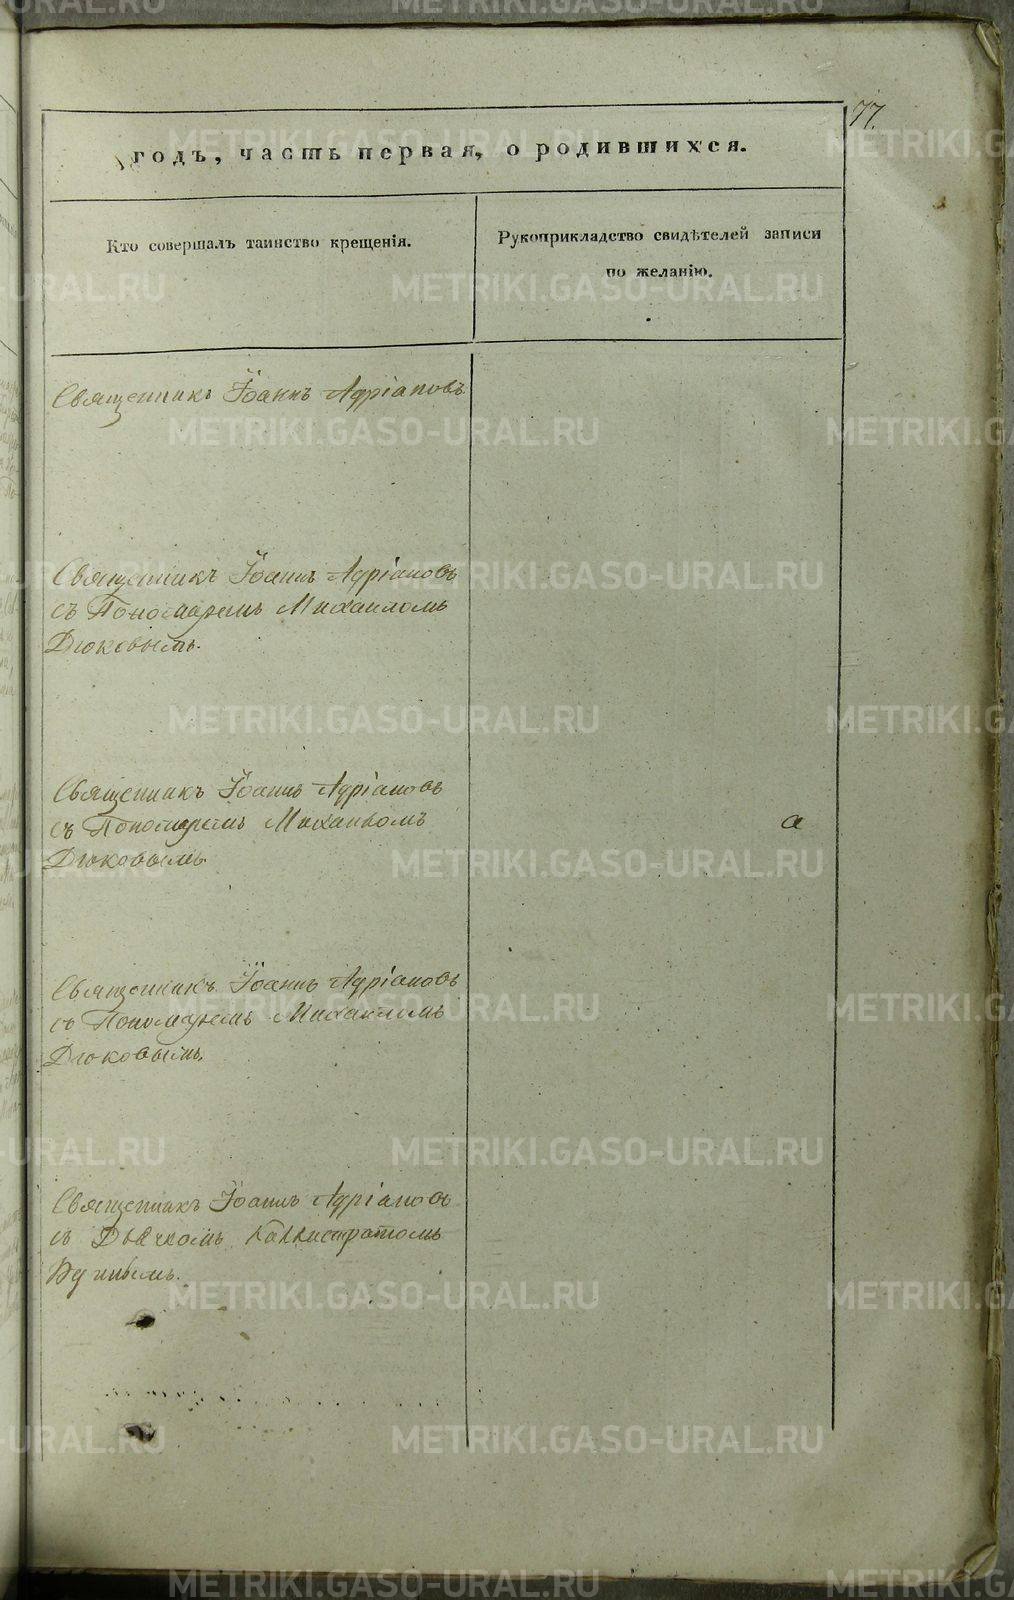 77.
годъ, часть первая, о родившихся.
Кто совершалъ таинство крещенія.
Рукоприкладство свидѣтелей записи
по желанію.
Священникъ Іоаннъ Адріановъ
Священникъ Іоаннъ Адріановъ
съ Пономаремъ Михаиломъ
Дюковымъ.
Священникъ Іоаннъ Адріановъ
съ Пономаремъ Михаиломъ
Дюковымъ.
а
Священникъ Іоаннъ Адріановъ
съ Пономаремъ Михаиломъ
Дюковымъ.
Священникъ Іоаннъ Адріановъ
съ Дьячкомъ Каллистратомъ
METRIKI.GASO-URAL.RU